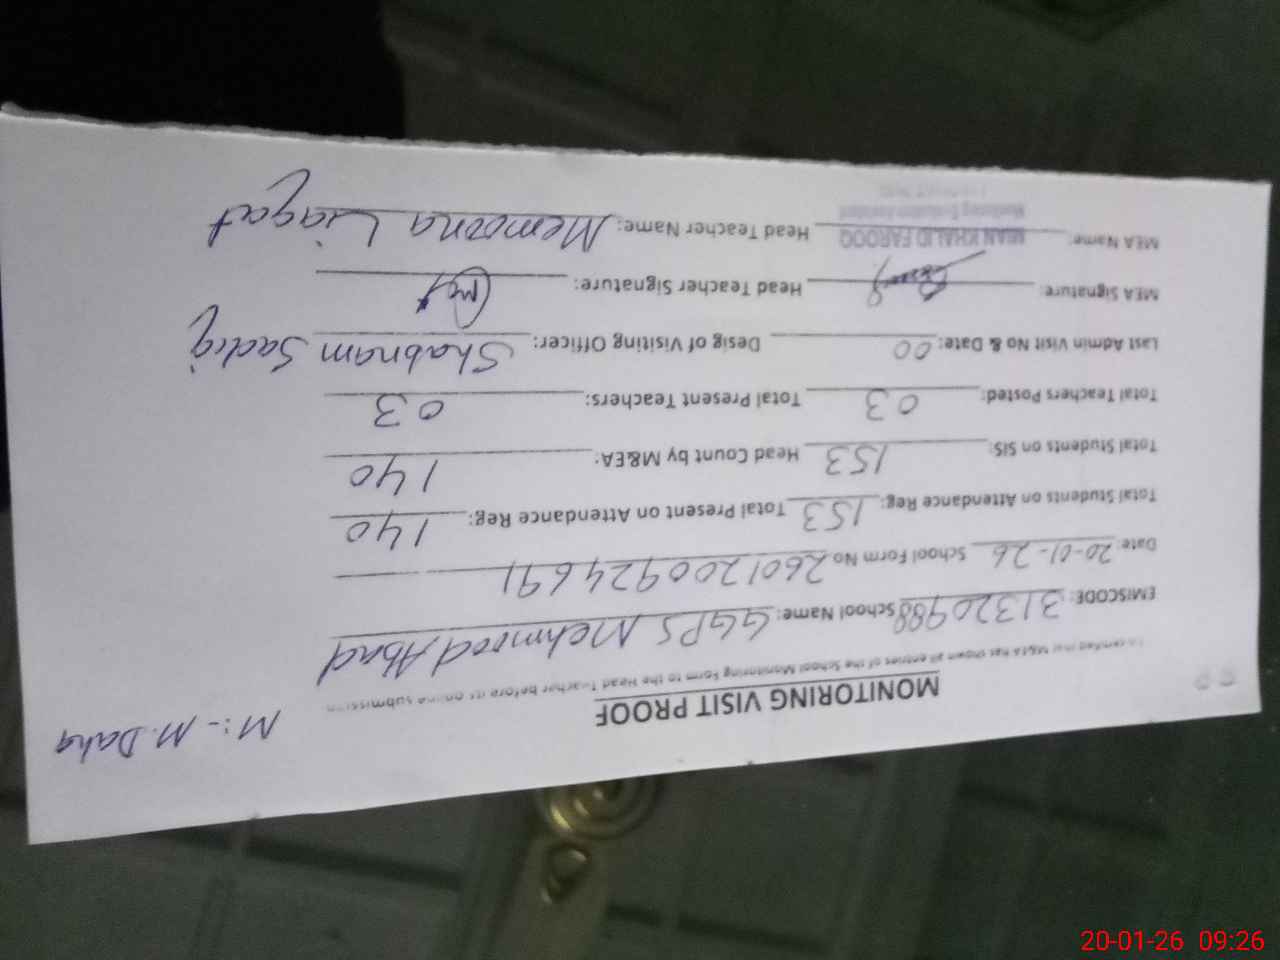 M:- M. Daha
MONITORING VISIT PROOF
It is certified that M&EA has shown all entries of the School Monitoring Form to the Head Teacher before its online submission
EMISCODE: 31320988 School Name: GGPS Mehmood Abad
Date: 20-01-26 School Form No 2601200924691
Total Students on Attendance Reg: 153 Total Present on Attendance Reg: 140
Total Students on SIS: 153 Head Count by M&EA: 140
Total Teachers Posted: 03 Total Present Teachers: 03
Last Admin Visit No & Date: 00 Desig of Visiting Officer: Shabnam Sadiq
MEA Signature: Head Teacher Signature:
MEA Name: MIAN KHALID FAROOQ Head Teacher Name: Memoona Liaqat
Monitoring Evaluation Assistant
20-01-26 09:26